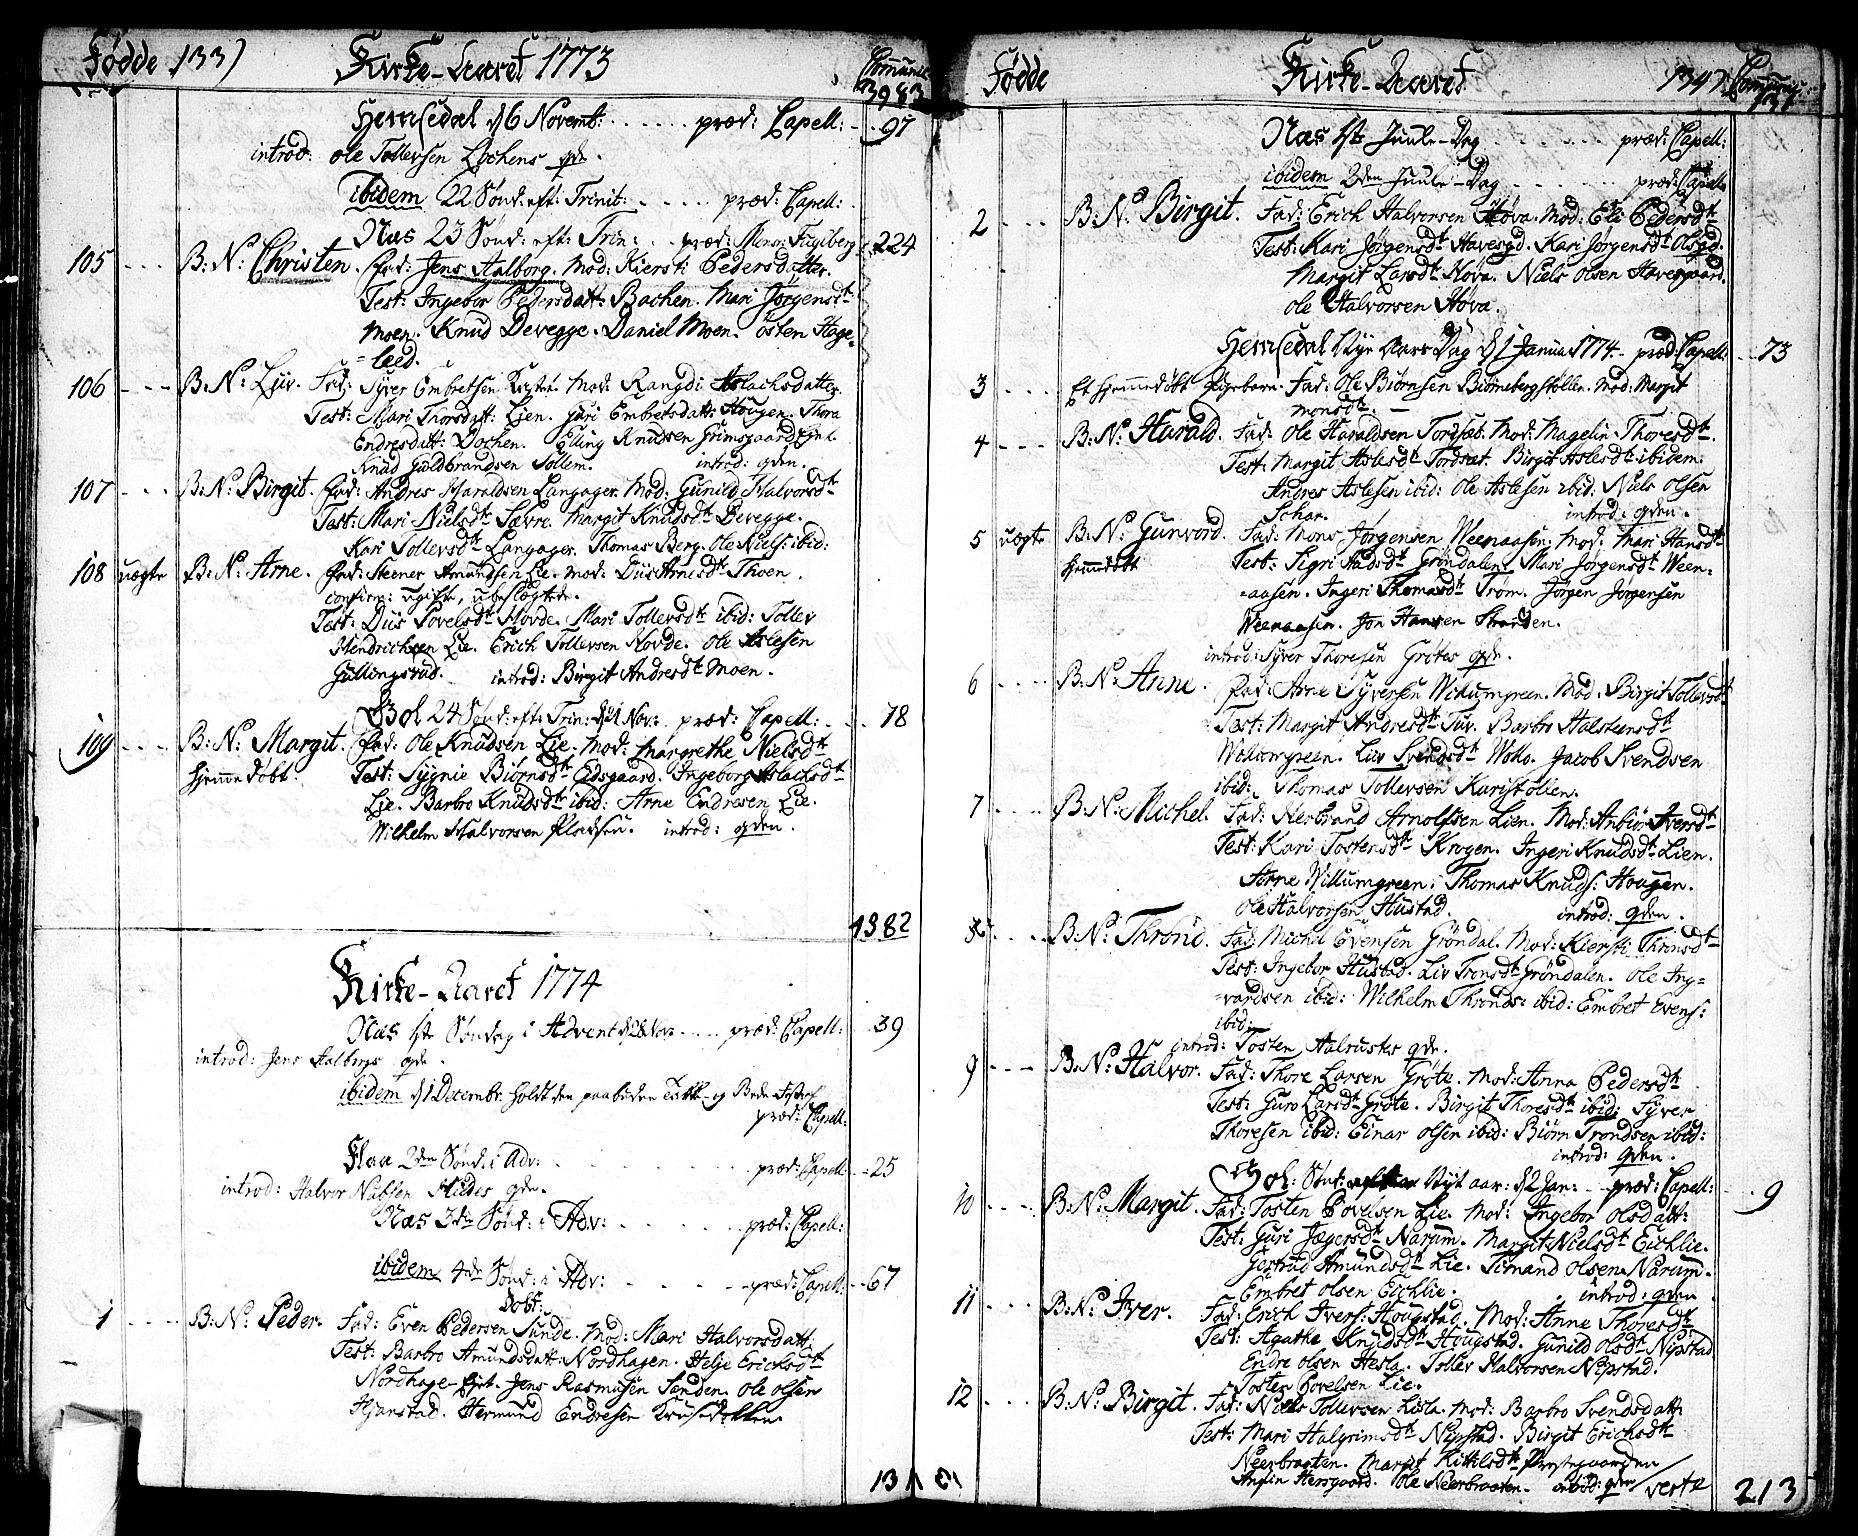 Fødde 133)
Kirke-Aaret 1773
Communic:
3983
Hemsedal d 6 Novemb: præd: Capell: 97
introd: Ole Tollefsen Løchens qde.
ibidem 22 Sønd: eft: Trinit: præd: Capell:
Næs 23 Sønd: eft: Trin: præd: Mons: Fugiberg 224
105 B: N: Christen. Fad: Jens Aalborg. Mod: Kiersti Pedersdatter.
Test: Ingebor Pedersdatt: Bachen. Mari Jørgensdt:
Moen. Knud Devegge. Daniel Moen. Østen Hage-
=leed.
106 B: N: Liv. Fad: Syver Embretsen Mod: Rangdi Aslachsdatter
Test: Mari Thorsdatt: Lien. Guri Embretsdatt: Hougen. Thora
Endresdatt: Dochen. Elling Knudsen Grimsgaard Ejet.
Knud Guldbrandsen Tollem. introd: qden.
107 B: N: Birgit. Fad: Andres Haraldsen Langager. Mod: Gunild Halvorsdt:
Test: Mari Nielsdt: Sævre. Margit Knudsdt: Devegge.
Kari Tollevsdt: Langager. Thomas Berg. Ole Niels: ibid:
108 uægte B: N: Arne. Fad: Steener Amundsen Lie. Mod: Diis Arnesdt: Thoen.
confirm: ugifte, ubeslægtede.
Test: Diis Povelsdt: Hovde. Mari Tollevsdt: ibid: Tollev
Hendrichsen Lie. Erich Tollevsen Hovde. Ole Aslesen
Gullingsrud. introd: Birgit Andresdt: Moen.
Gol 24 Sønd: eft: Trin: d 21 Nov: præd: Capell: 78
109 B: N: Margit. Fad: Ole Knudsen Lie. Mod: Margrethe Nielsdt:
hjemmedøbt. Test: Sygnie Biørnsdt: Eidsgaard. Ingeborg Aslachsdt:
Lie. Barbro Knudsdt: ibid: Arne Endresen Lie.
Wilhelm Halvorsen Pladsen. introd: qden.
4382
Kirke-Aaret 1774
Næs 1ste Søndag i Advent d 28 Nov: præd: Capell: 39
introd: Jens Aalborgs qde.
ibidem d 1 Decembr: holdt den paabudne Takke- og Bede-Fest
præd: Capell:
Flaa 2den Sønd: i Adv: præd: Capell: 25
introd: Halvor Nubsen Studes qde.
Næs 3de Sønd: i Adv: præd: Capell:
ibidem 4de Sønd: i Adv: præd: Capell: 67
Døbt:
1 B: N: Peder. Fad: Even Pedersen Sunde. Mod: Mari Halvorsdatt:
Test: Barbro Amundsdatt: Nordhagen. Helje Erichsdt:
Nordhage Ejet. Jens Rasmusen Sanden. Ole Olsen
Hjanstad. Hermund Endresen
131
Fødde
Kirke-Aaret
134)
Communic:
131
Næs 1ste Juule-Dag præd: Capell:
ibidem 2den Juule-Dag præd: Capell:
2 B: N: Birgit. Fad: Erich Halvorsen Hova. Mod: Eli Pedersdt:
Test: Kari Jørgensdt: Havesgd. Kari Jørgensdt: Olsgd.
Margit Larsdt: Hova. Niels Olsen Havesgaard.
Ole Halvorsen Hova.
Hemsedal Nye Aars Dag d 1 Janua: 1774. præd: Capell: 73
3 Et hjemmedøbt Pigebarn. Fad: Ole Biørnsen Biørnebergstøllen. Mod: Margit
Monsdt:
4 B: N: Harald. Fad: Ole Haraldsen Tordsæt. Mod: Magelin Thoresdt:
Test: Margit Aslesdt: Tordsæt. Birgit Aslesdt: ibidem:
Andres Aslesen ibid: Ole Aslesen ibid: Niels Olsen
Schar. introd: qden.
5 uægte B: N: Gunvord. Fad: Mons Jørgensen Weenaasen. Mod: Mari Hansdt:
hjemmedøbt Test: Sigri Aadsdt: Grøndalen. Mari Jørgensdt: Ween-
=aasen. Ingeri Thomasdt: Trøm. Jørgen Jørgensen
Weenaasen. Jon Hansen Stranden.
introd: Syver Thoresen Grøtes qde.
6 B: N: Anne. Fad: Arne Syversen Wiltumgreen. Mod: Birgit Tollevsdt:
Test: Margit Andresdt: Tuv. Barbro Halstensdt:
Wiltomgreen. Liv Svendsdt: Jacob Svendsen
ibid: Thomas Tollevsen Karistølien.
7 B: N: Michel. Fad: Herbrand Arnolfsen Lien. Mod: Anbiør Iversdt:
Test: Kari Tostensdt: Krogen. Ingeri Knudsdt: Lien.
Arne Wiltumgreen. Thomas Knuds: Hougen.
Ole Halvorsen Hustad. introd: qden.
8 B: N: Thrond. Fad: Michel Evensen Grøndal. Mod: Kiersti Thronsdt:
Test: Ingebor Hustad. Liv Tronsdt: Grøndalen. Ole Ing-
=vardsen ibid: Wilhelm Thronds: ibid: Embret Evens:
ibid:
introd: Tosten Aalrustes qde.
9 B: N: Halvor. Fad: Thore Larsen Grøte. Mod: Anna Pedersdt:
Test: Guro Larsdt: Grøte. Birgit Thoresdt: ibid: Syver
Thoresen ibid: Einar Olsen ibid: Biørn Trondsen ibid:
introd: qden.
Gol: Sønd: efter Nyt aar: d 2 Jan: præd: Capell: 9
10 B: N: Margit. Fad: Tosten Povelsen Lie. Mod: Ingebor Olsdatt:
Test: Guri Jægersdt: Narum. Margit Nielsdt: Eichlie.
Gertrud Amundsdt: Lie. Simand Olsen Narum.
Embret Olsen Eichlie. introd: qden
11 B: N: Iver. Fad: Erich Ivers: Hougstad. Mod: Anne Thoresdt:
Test: Agatha Knudsdt: Hougstad. Gunild Olsdt: Nipstad
Endre Olsen Hesla. Tollev Halvorsen Nipstad.
Tosten Povelsen Lie.
12 B: N: Birgit. Fad: Niels Tollevsen Lisla. Mod: Barbro Svendsdatt:
Test: Mari Halgrimsdt: Nipstad. Birgit Erichsdt:
Neerbraaten. Margit Kittilsdt: Præstegaarden
Anfin Hersgaard. Ole Neerbraaten. introd: qden
verte 213